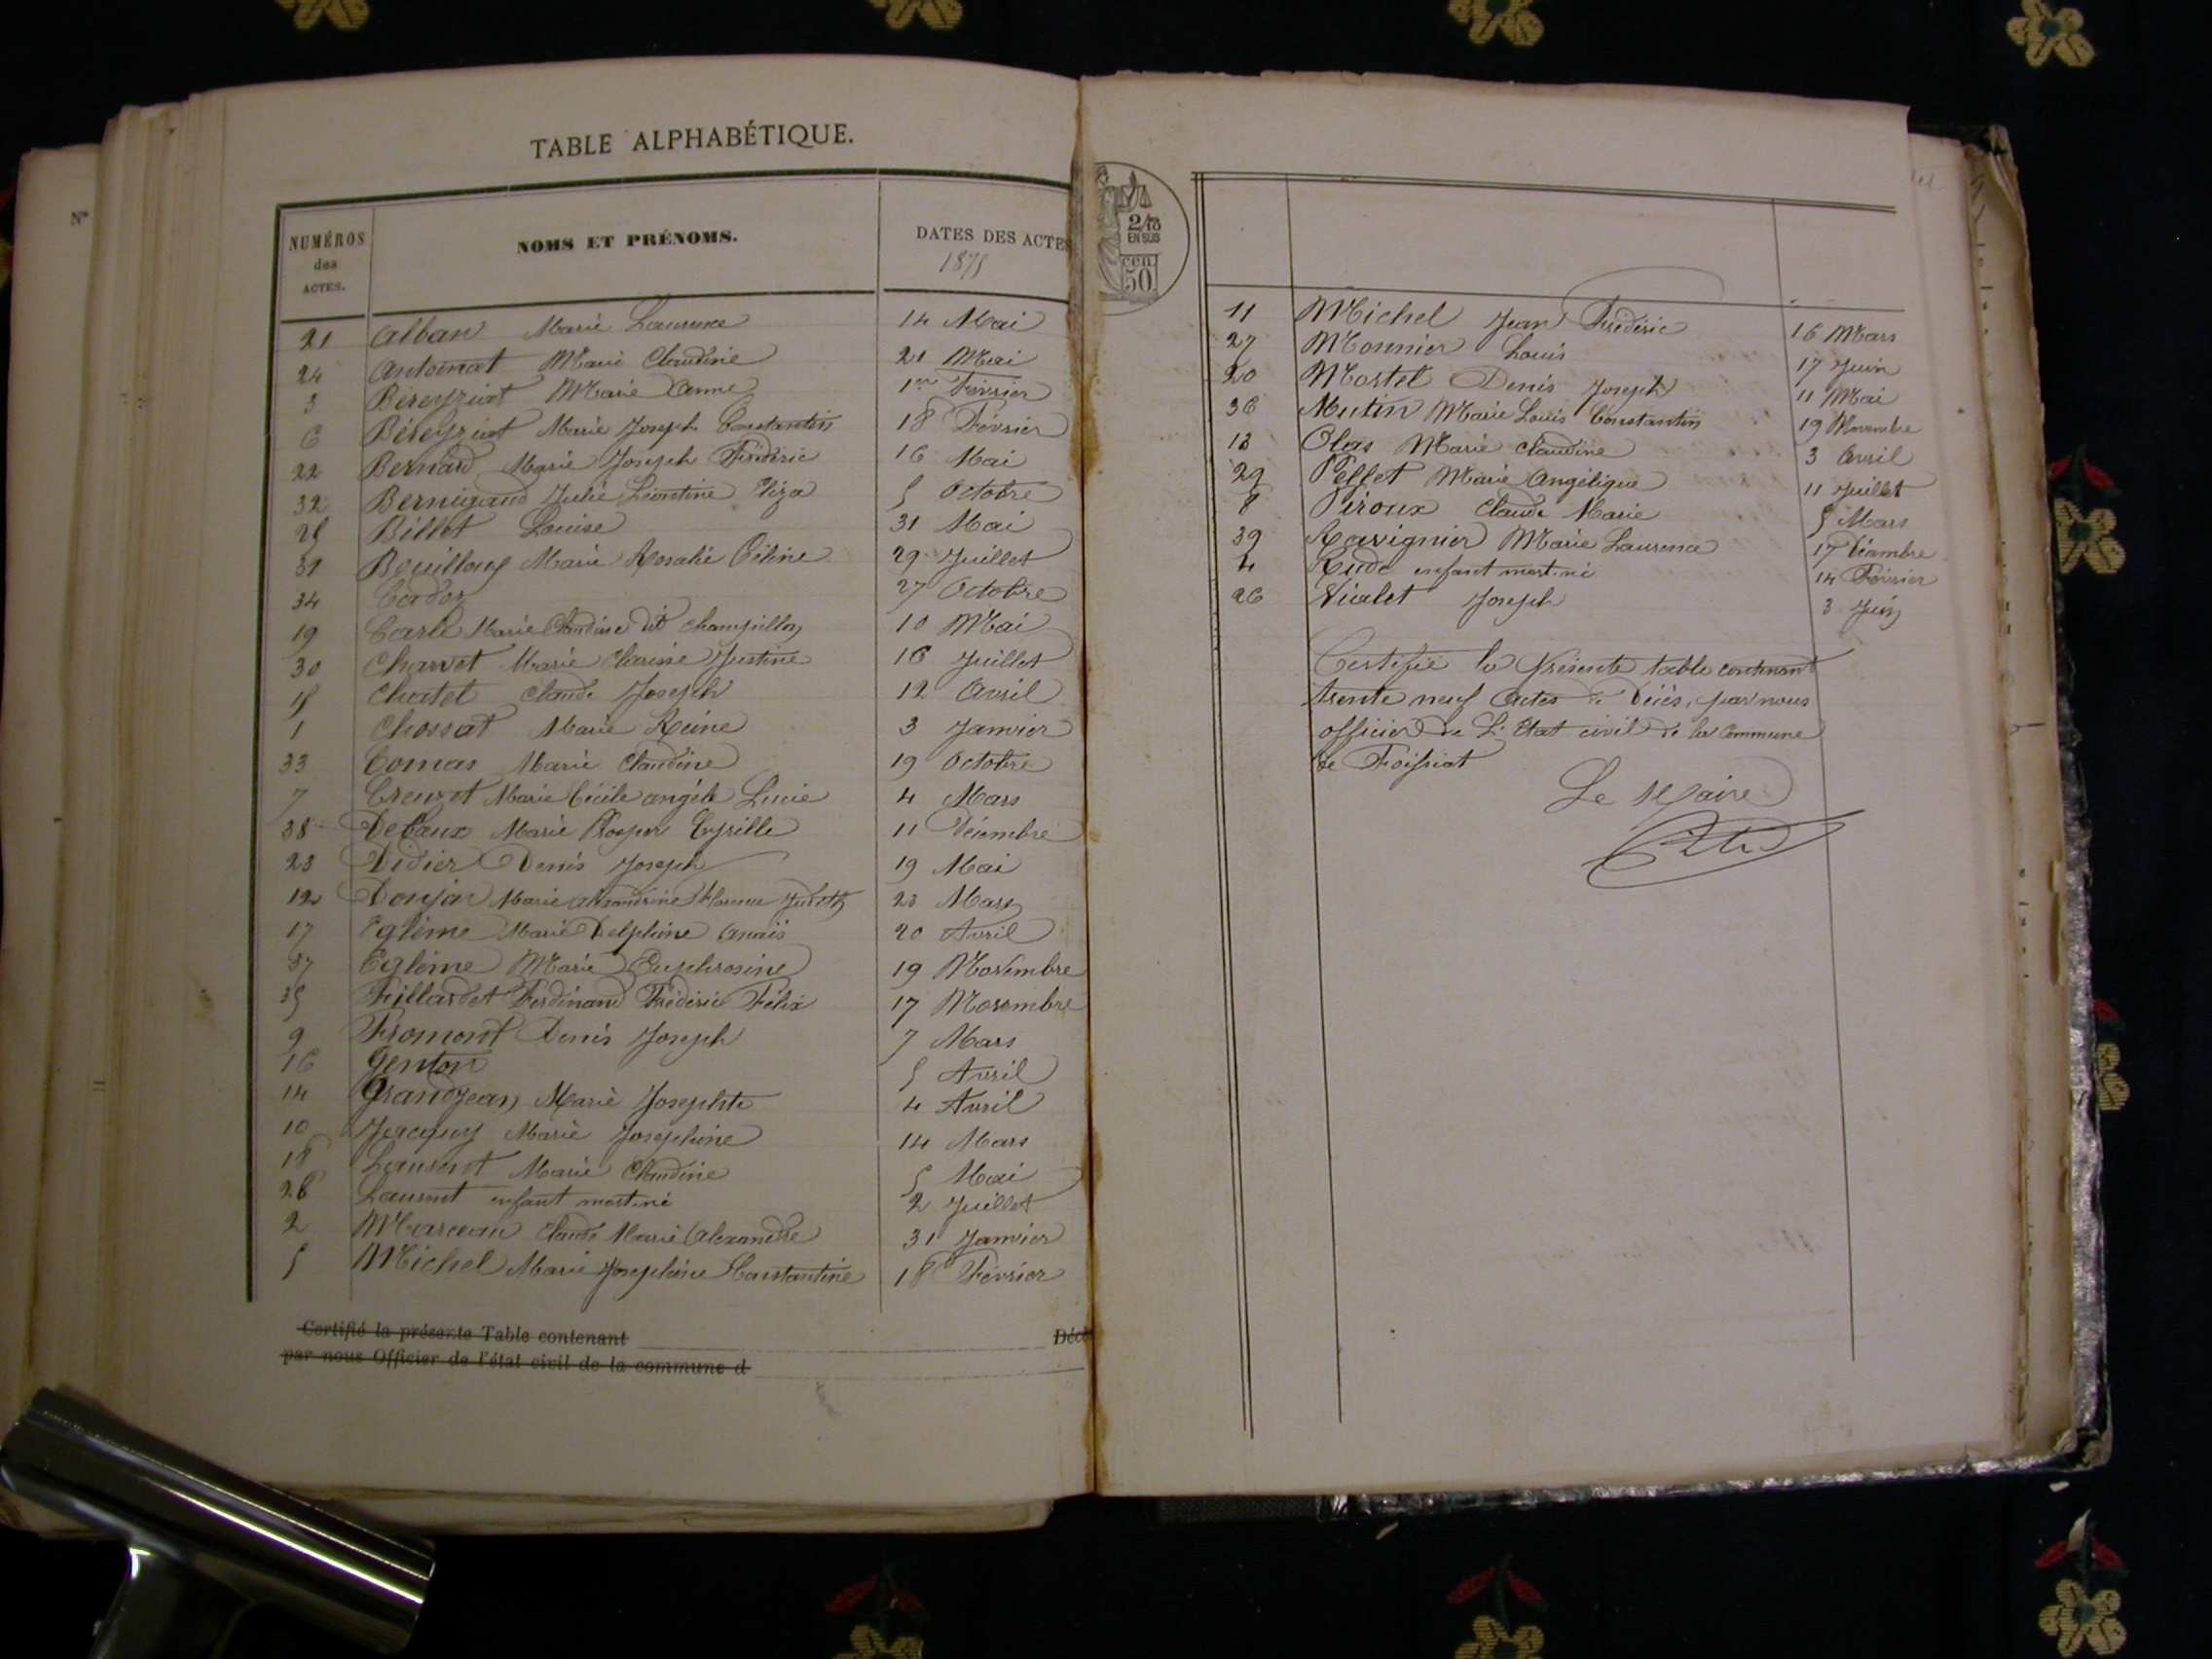 N°
TABLE ALPHABÉTIQUE.
NUMÉROS des ACTES. NOMS ET PRÉNOMS. DATES DES ACTES
1875
21 Alban Marie Laurence 14 Mai
24 Antoinat Marie Claudine 21 Mai
3 Béreyziat Marie Anne 1er Février
6 Béreyziat Marie Joseph Constantin 18 Février
22 Bernard Marie Joseph Frédéric 16 Mai
32 Bernigaud Julie Léontine Eliza 5 Octobre
25 Billet Louise 31 Mai
31 Bouilloux Marie Rosalie Céline 29 Juillet
34 Cadoz 27 Octobre
19 Carle Marie Claudine dit Champillon 10 Mai
30 Charvet Marie Clarisse Justine 16 Juillet
15 Chatel Claude Joseph 12 Avril
1 Chossat Marie Reine 3 Janvier
33 Comas Marie Claudine 19 Octobre
7 Creuzet Marie Cécile angèle Lucie 4 Mars
38 Debaux Marie Prosper Cyrille 11 Décembre
23 Didier Denis Joseph 19 Mai
12 Donjon Marie Alexandrine Florence Judith 23 Mars
17 Eglème Marie Delphine Anaïs 20 Avril
37 Eglème Marie Euphrosine 19 Novembre
35 Fillardet Ferdinand Frédéric Félix 17 Novembre
9 Fromont Denis Joseph 7 Mars
16 Genton 5 Avril
14 Grandjean Marie Josephte 4 Avril
10 Jacquoy Marie Joséphine 14 Mars
18 Laurent Marie Claudine 5 Mai
28 Laurent enfant mort né 2 Juillet
2 Marceau Claude Marie Alexandre 31 Janvier
5 Michel Marie Joséphine Constantine 18 Février
Certifié la présente Table contenant Décè
par nous Officier de l'état civil de la commune d
2/10
EN SUS
cen
50
11 Michel Jean Frédéric 16 Mars
27 Monnier Louis 17 Juin
20 Mostel Denis Joseph 11 Mai
36 Mutin Marie Louis Constantin 19 Novembre
13 Olas Marie Claudine 3 Avril
29 Pellet Marie Angélique 11 Juillet
8 Piroux Claude Marie 5 Mars
39 Ravignier Marie Laurence 17 Décembre
4 Rude enfant mort né 14 Février
26 Vialet Joseph 3 Juin
Certifié la présente table contenant
trente neuf Actes de Décès, par nous
officier de L'Etat civil de la Commune
de Foissiat
Le Maire